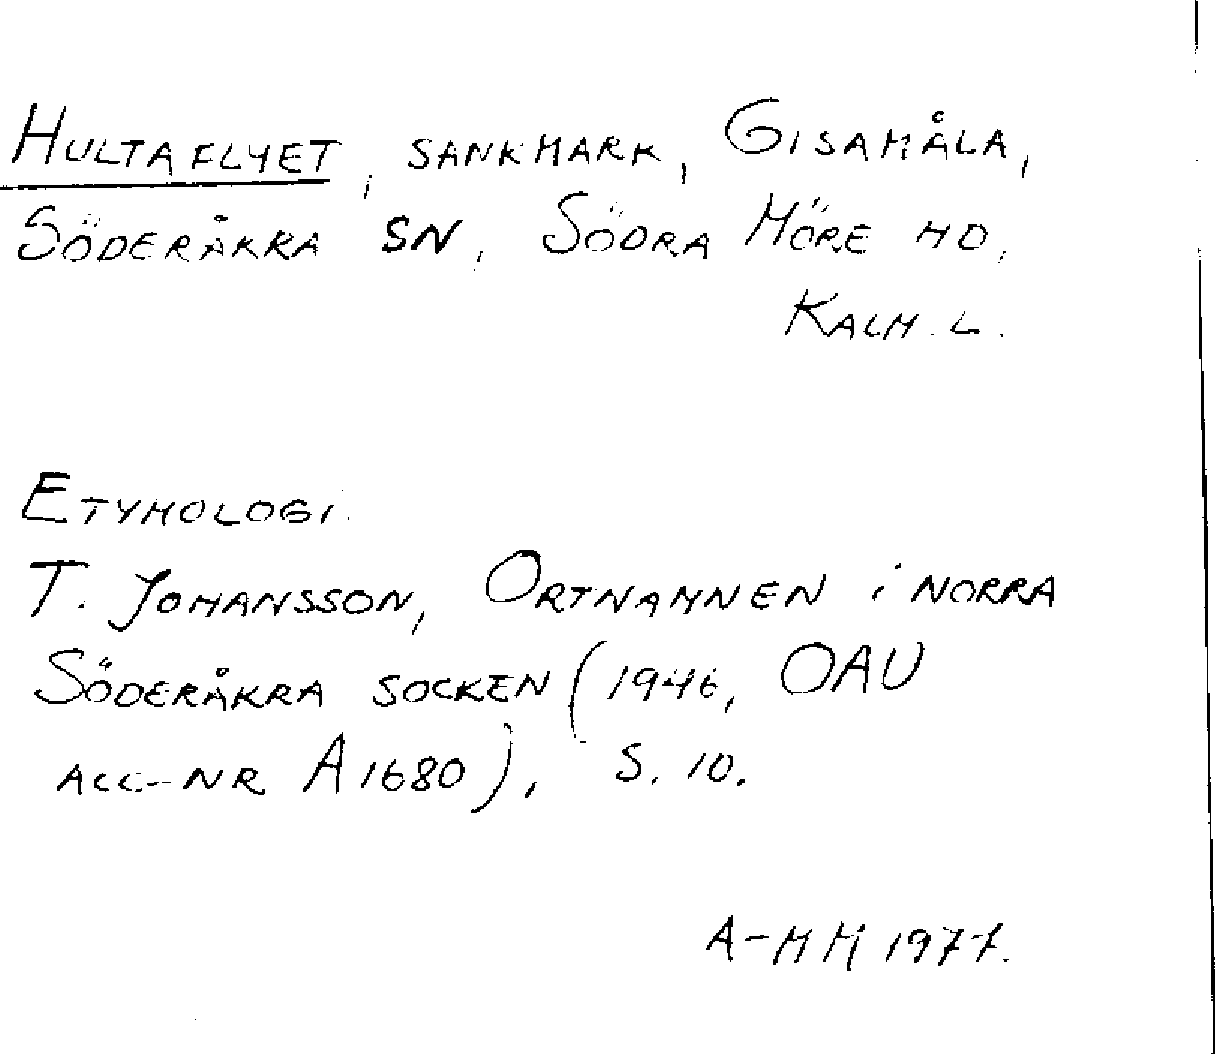 HULTAFLYET, SANKMARK, GISAMÅLA,
SÖDERÅKRA SN, SÖDRA MÖRE HD,
KALM. L.
ETYMOLOGI.
T. JOHANSSON, ORTNAMNEN i NORRA
SÖDERÅKRA SOCKEN (1946, OAU
ACC-NR A1680), S. 10.
A-MM 1977.